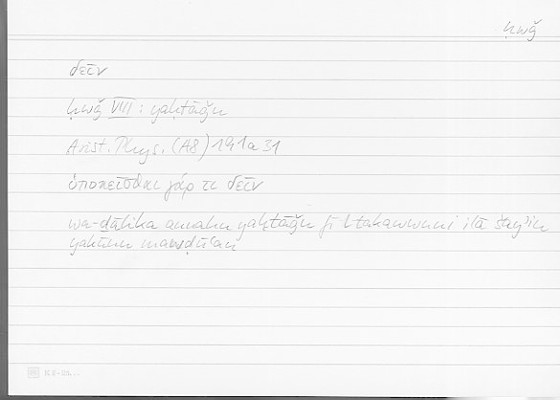 ḥwǧ
δεῖν
ḥwǧ VIII : yaḥtāǧu
Arist. Phys. (A8) 191a31
ὑποκεῖσθαι γάρ τι δεῖν
wa-ḏālika annahu yaḥtāǧu fī l-takawwuni ilā šayʾin
yakūnu mawǧūdan